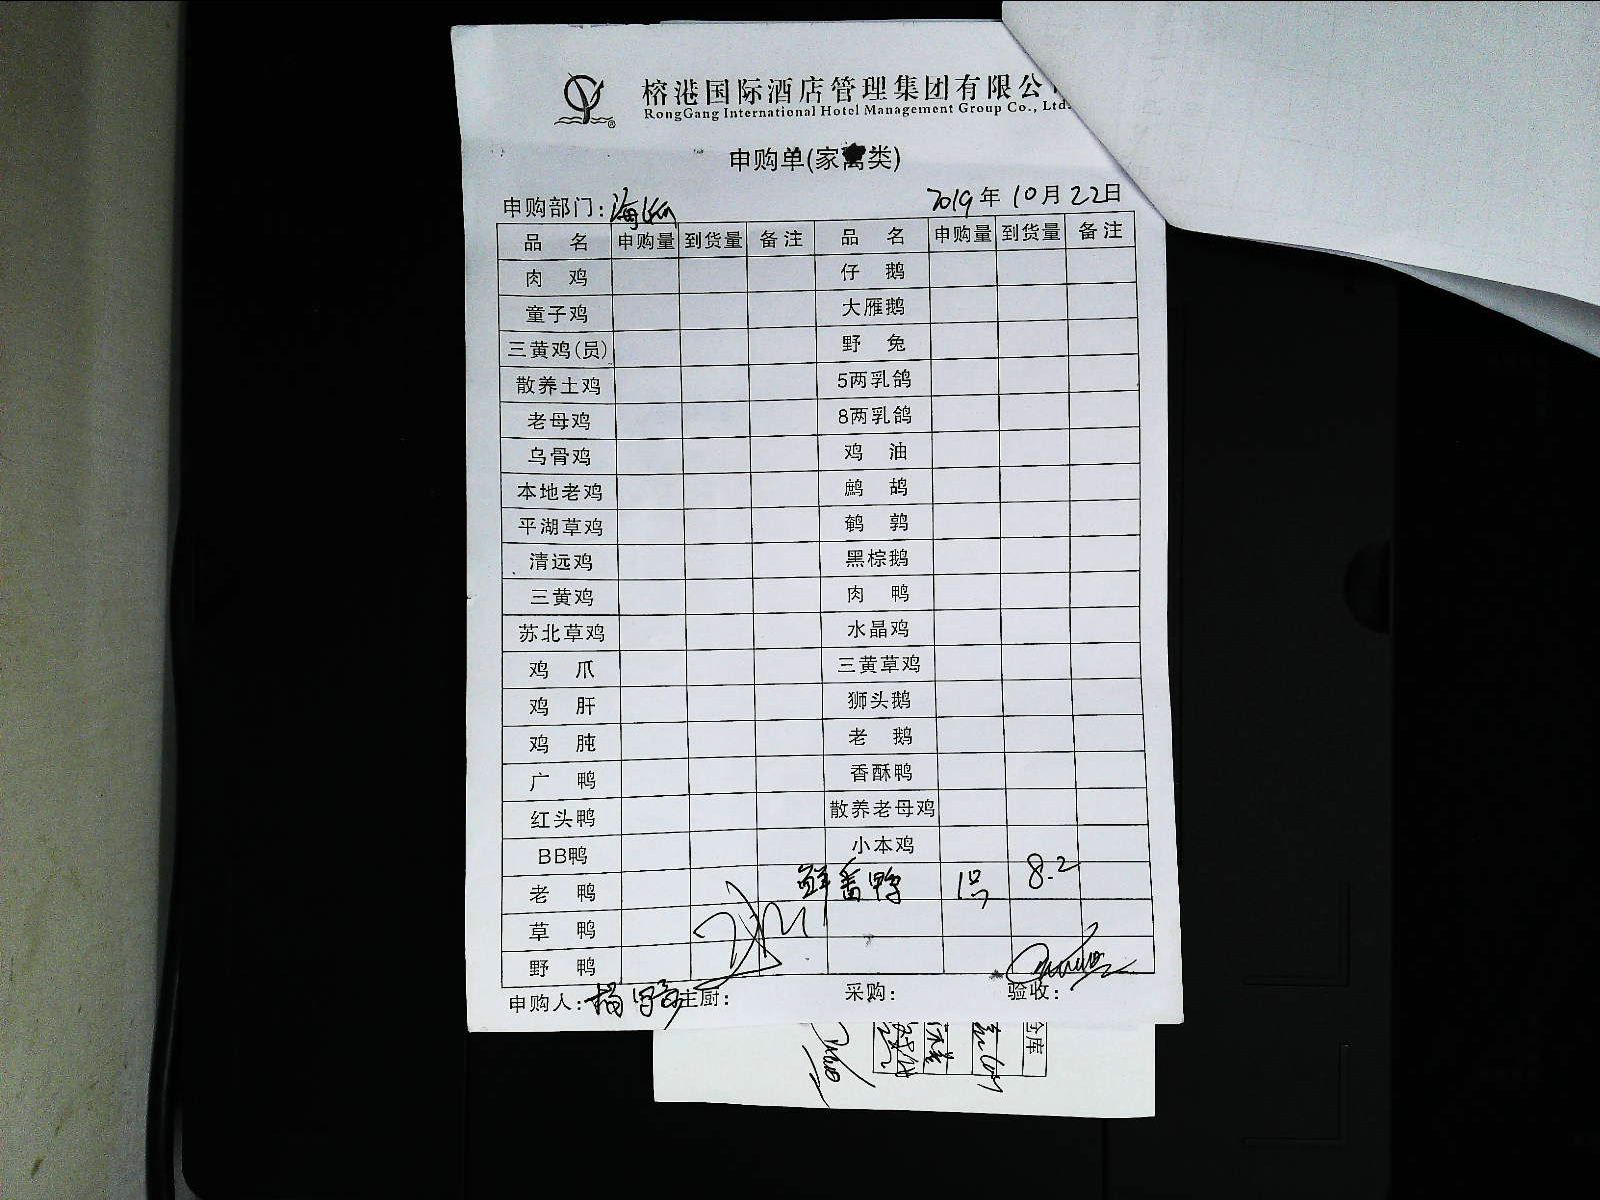 榕港国际酒店管理集团有限公
RongGang International Hotel Management Group Co., Ltd.
申购单(家禽类)
申购部门: 2019年10月22日
品 名 申购量 到货量 备注 品 名 申购量 到货量 备注
肉 鸡 仔 鹅
童子鸡 大雁鹅
三黄鸡(员) 野 兔
散养土鸡 5两乳鸽
老母鸡 8两乳鸽
乌骨鸡 鸡 油
本地老鸡 鹧 鸪
平湖草鸡 鹌 鹑
清远鸡 黑棕鹅
三黄鸡 肉 鸭
苏北草鸡 水晶鸡
鸡 爪 三黄草鸡
鸡 肝 狮头鹅
鸡 肫 老 鹅
广 鸭 香酥鸭
红头鸭 散养老母鸡
BB鸭 小本鸡
老 鸭 鲜番鸭 1只 8.2
草 鸭
野 鸭
申购人: 主厨: 采购: 验收:
仓库